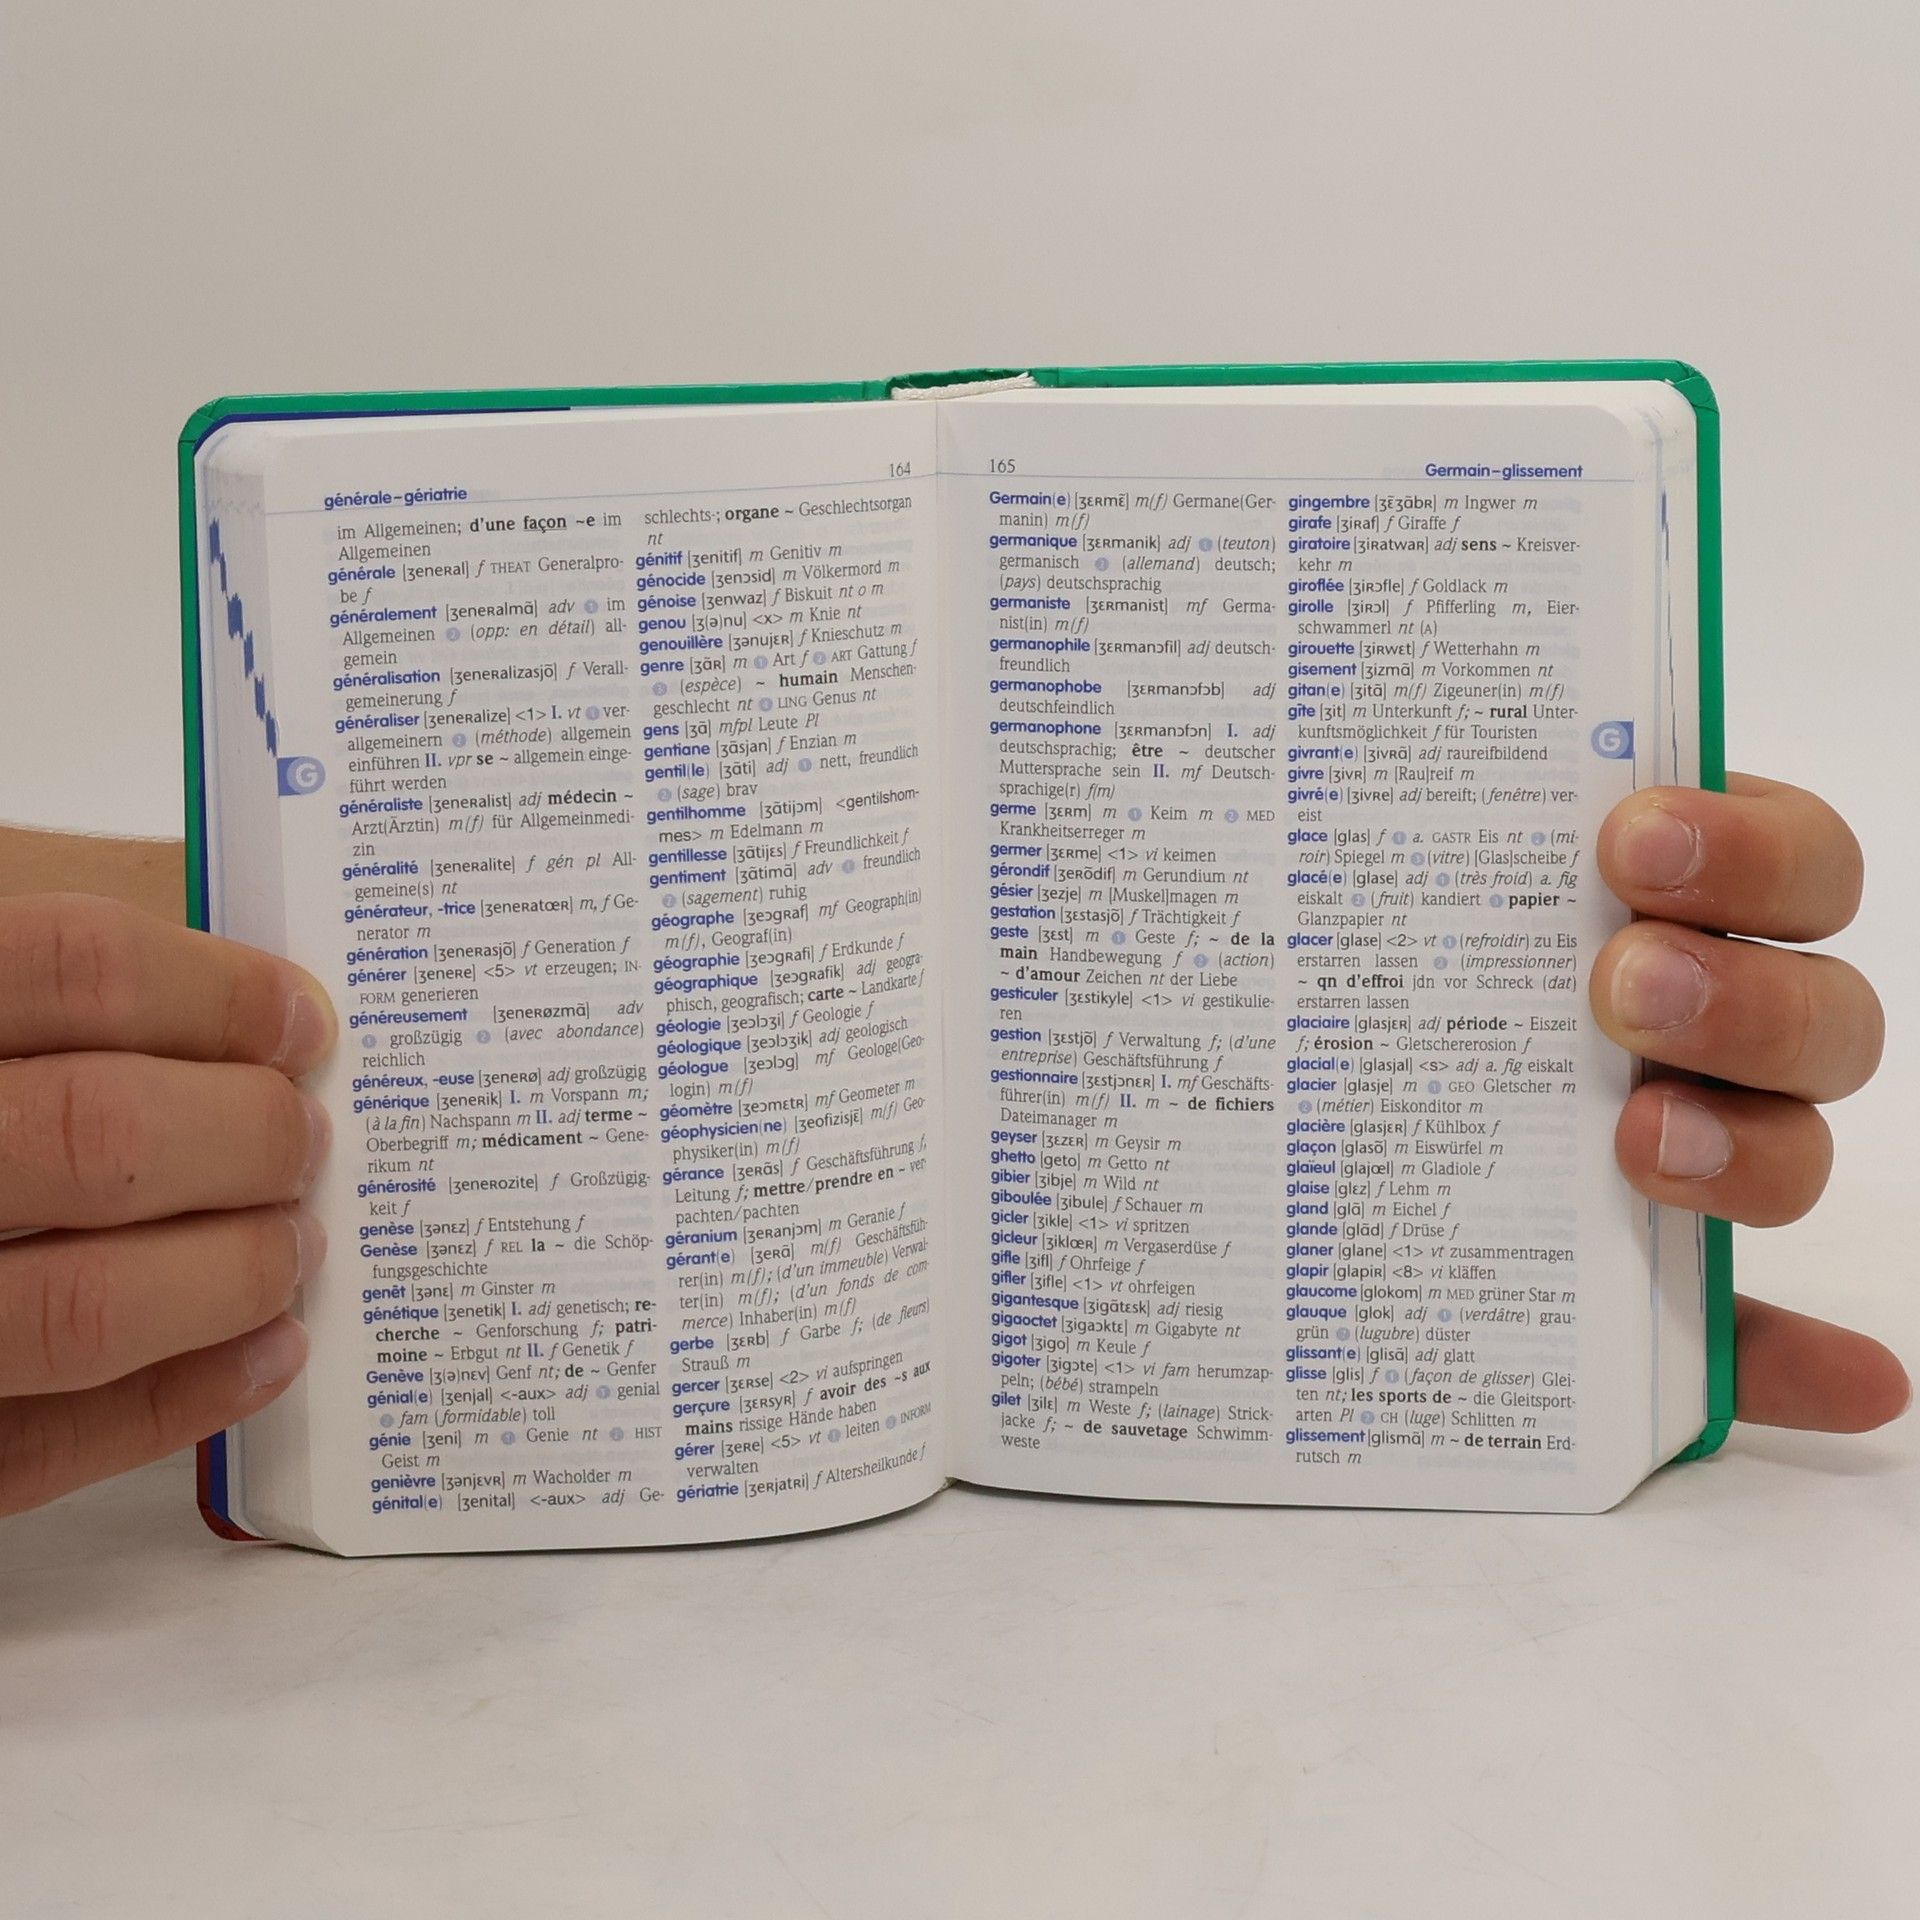 générale–gériatrie
164
im Allgemeinen; d'une façon ~e im
Allgemeinen
générale [ʒeneʀal] f THEAT Generalpro-
be f
généralement [ʒeneʀalmɑ̃] adv ① im
Allgemeinen ② (opp: en détail) all-
gemein
généralisation [ʒeneʀalizasjɔ̃] f Verall-
gemeinerung f
généraliser [ʒeneʀalize] <1> I. vt ① ver-
allgemeinern ② (méthode) allgemein
einführen II. vpr se ~ allgemein einge-
führt werden
G
généraliste [ʒeneʀalist] adj médecin ~
Arzt(Ärztin) m(f) für Allgemeinmedi-
zin
généralité [ʒeneʀalite] f gén pl All-
gemeine(s) nt
générateur, -trice [ʒeneʀatœʀ] m, f Ge-
nerator m
génération [ʒeneʀasjɔ̃] f Generation f
générer [ʒeneʀe] <5> vt erzeugen; IN-
FORM generieren
généreusement [ʒeneʀøzmɑ̃] adv
① großzügig ② (avec abondance)
reichlich
généreux, -euse [ʒeneʀø] adj großzügig
générique [ʒeneʀik] I. m Vorspann m;
(à la fin) Nachspann m II. adj terme ~
Oberbegriff m; médicament ~ Gene-
rikum nt
générosité [ʒeneʀozite] f Großzügig-
keit f
genèse [ʒənɛz] f Entstehung f
Genèse [ʒənɛz] f REL la ~ die Schöp-
fungsgeschichte
genêt [ʒənɛ] m Ginster m
génétique [ʒenetik] I. adj genetisch; re-
cherche ~ Genforschung f; patri-
moine ~ Erbgut nt II. f Genetik f
Genève [ʒ(ə)nɛv] Genf nt; de ~ Genfer
génial(e) [ʒenjal] <-aux> adj ① genial
② fam (formidable) toll
génie [ʒeni] m ① Genie nt ② HIST
Geist m
genièvre [ʒənjɛvʀ] m Wacholder m
génital(e) [ʒenital] <-aux> adj Ge-
schlechts-; organe ~ Geschlechtsorgan
nt
génitif [ʒenitif] m Genitiv m
génocide [ʒenɔsid] m Völkermord m
génoise [ʒenwaz] f Biskuit nt o m
genou [ʒ(ə)nu] <x> m Knie nt
genouillère [ʒənujɛʀ] f Knieschutz m
genre [ʒɑ̃ʀ] m ① Art f ② ART Gattung f
③ (espèce) ~ humain Menschen-
geschlecht nt ④ LING Genus nt
gens [ʒɑ̃] mfpl Leute Pl
gentiane [ʒɑ̃sjan] f Enzian m
gentil(le) [ʒɑ̃ti] adj ① nett, freundlich
② (sage) brav
gentilhomme [ʒɑ̃tijɔm] <gentilshom-
mes> m Edelmann m
gentillesse [ʒɑ̃tijɛs] f Freundlichkeit f
gentiment [ʒɑ̃timɑ̃] adv ① freundlich
② (sagement) ruhig
géographe [ʒeɔgʀaf] mf Geograph(in)
m(f), Geograf(in)
géographie [ʒeɔgʀafi] f Erdkunde f
géographique [ʒeɔgʀafik] adj geogra-
phisch, geografisch; carte ~ Landkarte f
géologie [ʒeɔlɔʒi] f Geologie f
géologique [ʒeɔlɔʒik] adj geologisch
géologue [ʒeɔlɔg] mf Geologe(Geo-
login) m(f)
géomètre [ʒeɔmɛtʀ] mf Geometer m
géophysicien(ne) [ʒeofizisjɛ̃] m(f) Geo-
physiker(in) m(f)
gérance [ʒeʀɑ̃s] f Geschäftsführung f,
Leitung f; mettre/prendre en ~ ver-
pachten/pachten
géranium [ʒeʀanjɔm] m Geranie f
gérant(e) [ʒeʀɑ̃] m(f) Geschäftsfüh-
rer(in) m(f); (d'un immeuble) Verwal-
ter(in) m(f); (d'un fonds de com-
merce) Inhaber(in) m(f)
gerbe [ʒɛʀb] f Garbe f; (de fleurs)
Strauß m
gercer [ʒɛʀse] <2> vi aufspringen
gerçure [ʒɛʀsyʀ] f avoir des ~s aux
mains rissige Hände haben
gérer [ʒeʀe] <5> vt ① leiten ② INFORM
verwalten
gériatrie [ʒeʀjatʀi] f Altersheilkunde f
165
Germain–glissement
Germain(e) [ʒɛʀmɛ̃] m(f) Germane(Ger-
manin) m(f)
germanique [ʒɛʀmanik] adj ① (teuton)
germanisch ② (allemand) deutsch;
(pays) deutschsprachig
germaniste [ʒɛʀmanist] mf Germa-
nist(in) m(f)
germanophile [ʒɛʀmanɔfil] adj deutsch-
freundlich
germanophobe [ʒɛʀmanɔfɔb] adj
deutschfeindlich
germanophone [ʒɛʀmanɔfɔn] I. adj
deutschsprachig; être ~ deutscher
Muttersprache sein II. mf Deutsch-
sprachige(r) f(m)
germe [ʒɛʀm] m ① Keim m ② MED
Krankheitserreger m
germer [ʒɛʀme] <1> vi keimen
gérondif [ʒeʀɔ̃dif] m Gerundium nt
gésier [ʒezje] m [Muskel]magen m
gestation [ʒɛstasjɔ̃] f Trächtigkeit f
geste [ʒɛst] m ① Geste f; ~ de la
main Handbewegung f ② (action)
~ d'amour Zeichen nt der Liebe
gesticuler [ʒɛstikyle] <1> vi gestikulie-
ren
gestion [ʒɛstjɔ̃] f Verwaltung f; (d'une
entreprise) Geschäftsführung f
gestionnaire [ʒɛstjɔnɛʀ] I. mf Geschäfts-
führer(in) m(f) II. m ~ de fichiers
Dateimanager m
geyser [ʒɛzɛʀ] m Geysir m
ghetto [geto] m Getto nt
gibier [ʒibje] m Wild nt
giboulée [ʒibule] f Schauer m
gicler [ʒikle] <1> vi spritzen
gicleur [ʒiklœʀ] m Vergaserdüse f
gifle [ʒifl] f Ohrfeige f
gifler [ʒifle] <1> vt ohrfeigen
gigantesque [ʒigɑ̃tɛsk] adj riesig
gigaoctet [ʒigaɔktɛ] m Gigabyte nt
gigot [ʒigo] m Keule f
gigoter [ʒigɔte] <1> vi fam herumzap-
peln; (bébé) strampeln
gilet [ʒilɛ] m Weste f; (lainage) Strick-
jacke f; ~ de sauvetage Schwimm-
weste
gingembre [ʒɛ̃ʒɑ̃bʀ] m Ingwer m
girafe [ʒiʀaf] f Giraffe f
giratoire [ʒiʀatwaʀ] adj sens ~ Kreisver-
kehr m
giroflée [ʒiʀɔfle] f Goldlack m
girolle [ʒiʀɔl] f Pfifferling m, Eier-
schwammerl nt (A)
girouette [ʒiʀwɛt] f Wetterhahn m
gisement [ʒizmɑ̃] m Vorkommen nt
gitan(e) [ʒitɑ̃] m(f) Zigeuner(in) m(f)
gîte [ʒit] m Unterkunft f; ~ rural Unter-
kunftsmöglichkeit f für Touristen
G
givrant(e) [ʒivʀɑ̃] adj raureifbildend
givre [ʒivʀ] m [Rau]reif m
givré(e) [ʒivʀe] adj bereift; (fenêtre) ver-
eist
glace [glas] f ① a. GASTR Eis nt ② (mi-
roir) Spiegel m ③ (vitre) [Glas]scheibe f
glacé(e) [glase] adj ① (très froid) a. fig
eiskalt ② (fruit) kandiert ③ papier ~
Glanzpapier nt
glacer [glase] <2> vt ① (refroidir) zu Eis
erstarren lassen ② (impressionner)
~ qn d'effroi jdn vor Schreck (dat)
erstarren lassen
glaciaire [glasjɛʀ] adj période ~ Eiszeit
f; érosion ~ Gletschererosion f
glacial(e) [glasjal] <s> adj a. fig eiskalt
glacier [glasje] m ① GEO Gletscher m
② (métier) Eiskonditor m
glacière [glasjɛʀ] f Kühlbox f
glaçon [glasɔ̃] m Eiswürfel m
glaïeul [glajœl] m Gladiole f
glaise [glɛz] f Lehm m
gland [glɑ̃] m Eichel f
glande [glɑ̃d] f Drüse f
glaner [glane] <1> vt zusammentragen
glapir [glapiʀ] <8> vi kläffen
glaucome [glokom] m MED grüner Star m
glauque [glok] adj ① (verdâtre) grau-
grün ② (lugubre) düster
glissant(e) [glisɑ̃] adj glatt
glisse [glis] f ① (façon de glisser) Glei-
ten nt; les sports de ~ die Gleitsport-
arten Pl ② CH (luge) Schlitten m
glissement [glismɑ̃] m ~ de terrain Erd-
rutsch m